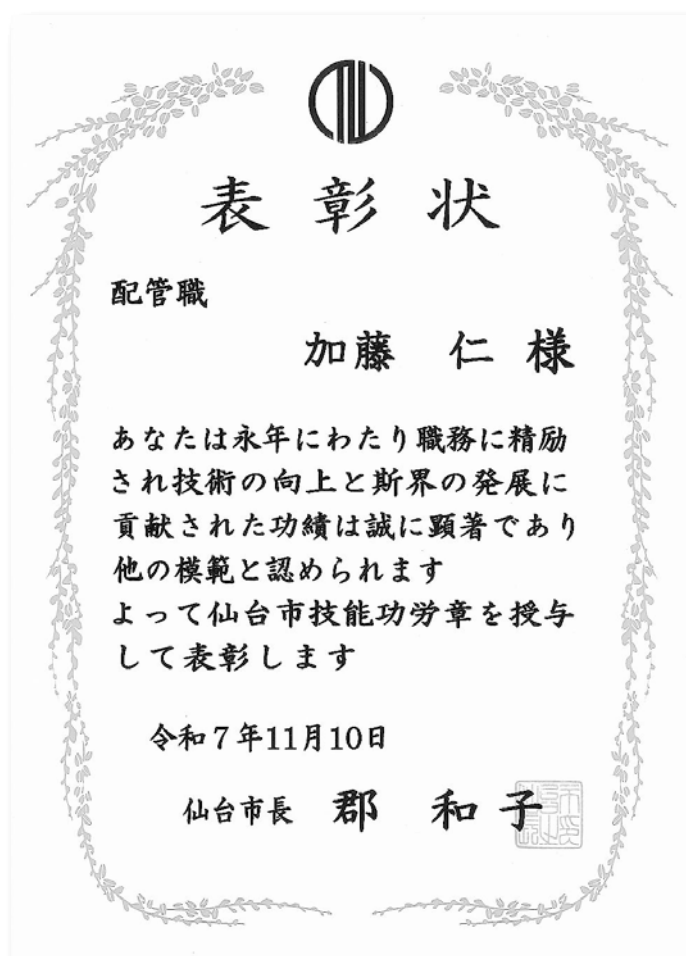 表彰状
配管職
加藤 仁 様
あなたは永年にわたり職務に精励
され技術の向上と斯界の発展に
貢献された功績は誠に顕著であり
他の模範と認められます
よって仙台市技能功労章を授与
して表彰します
令和7年11月10日
仙台市長 郡 和子